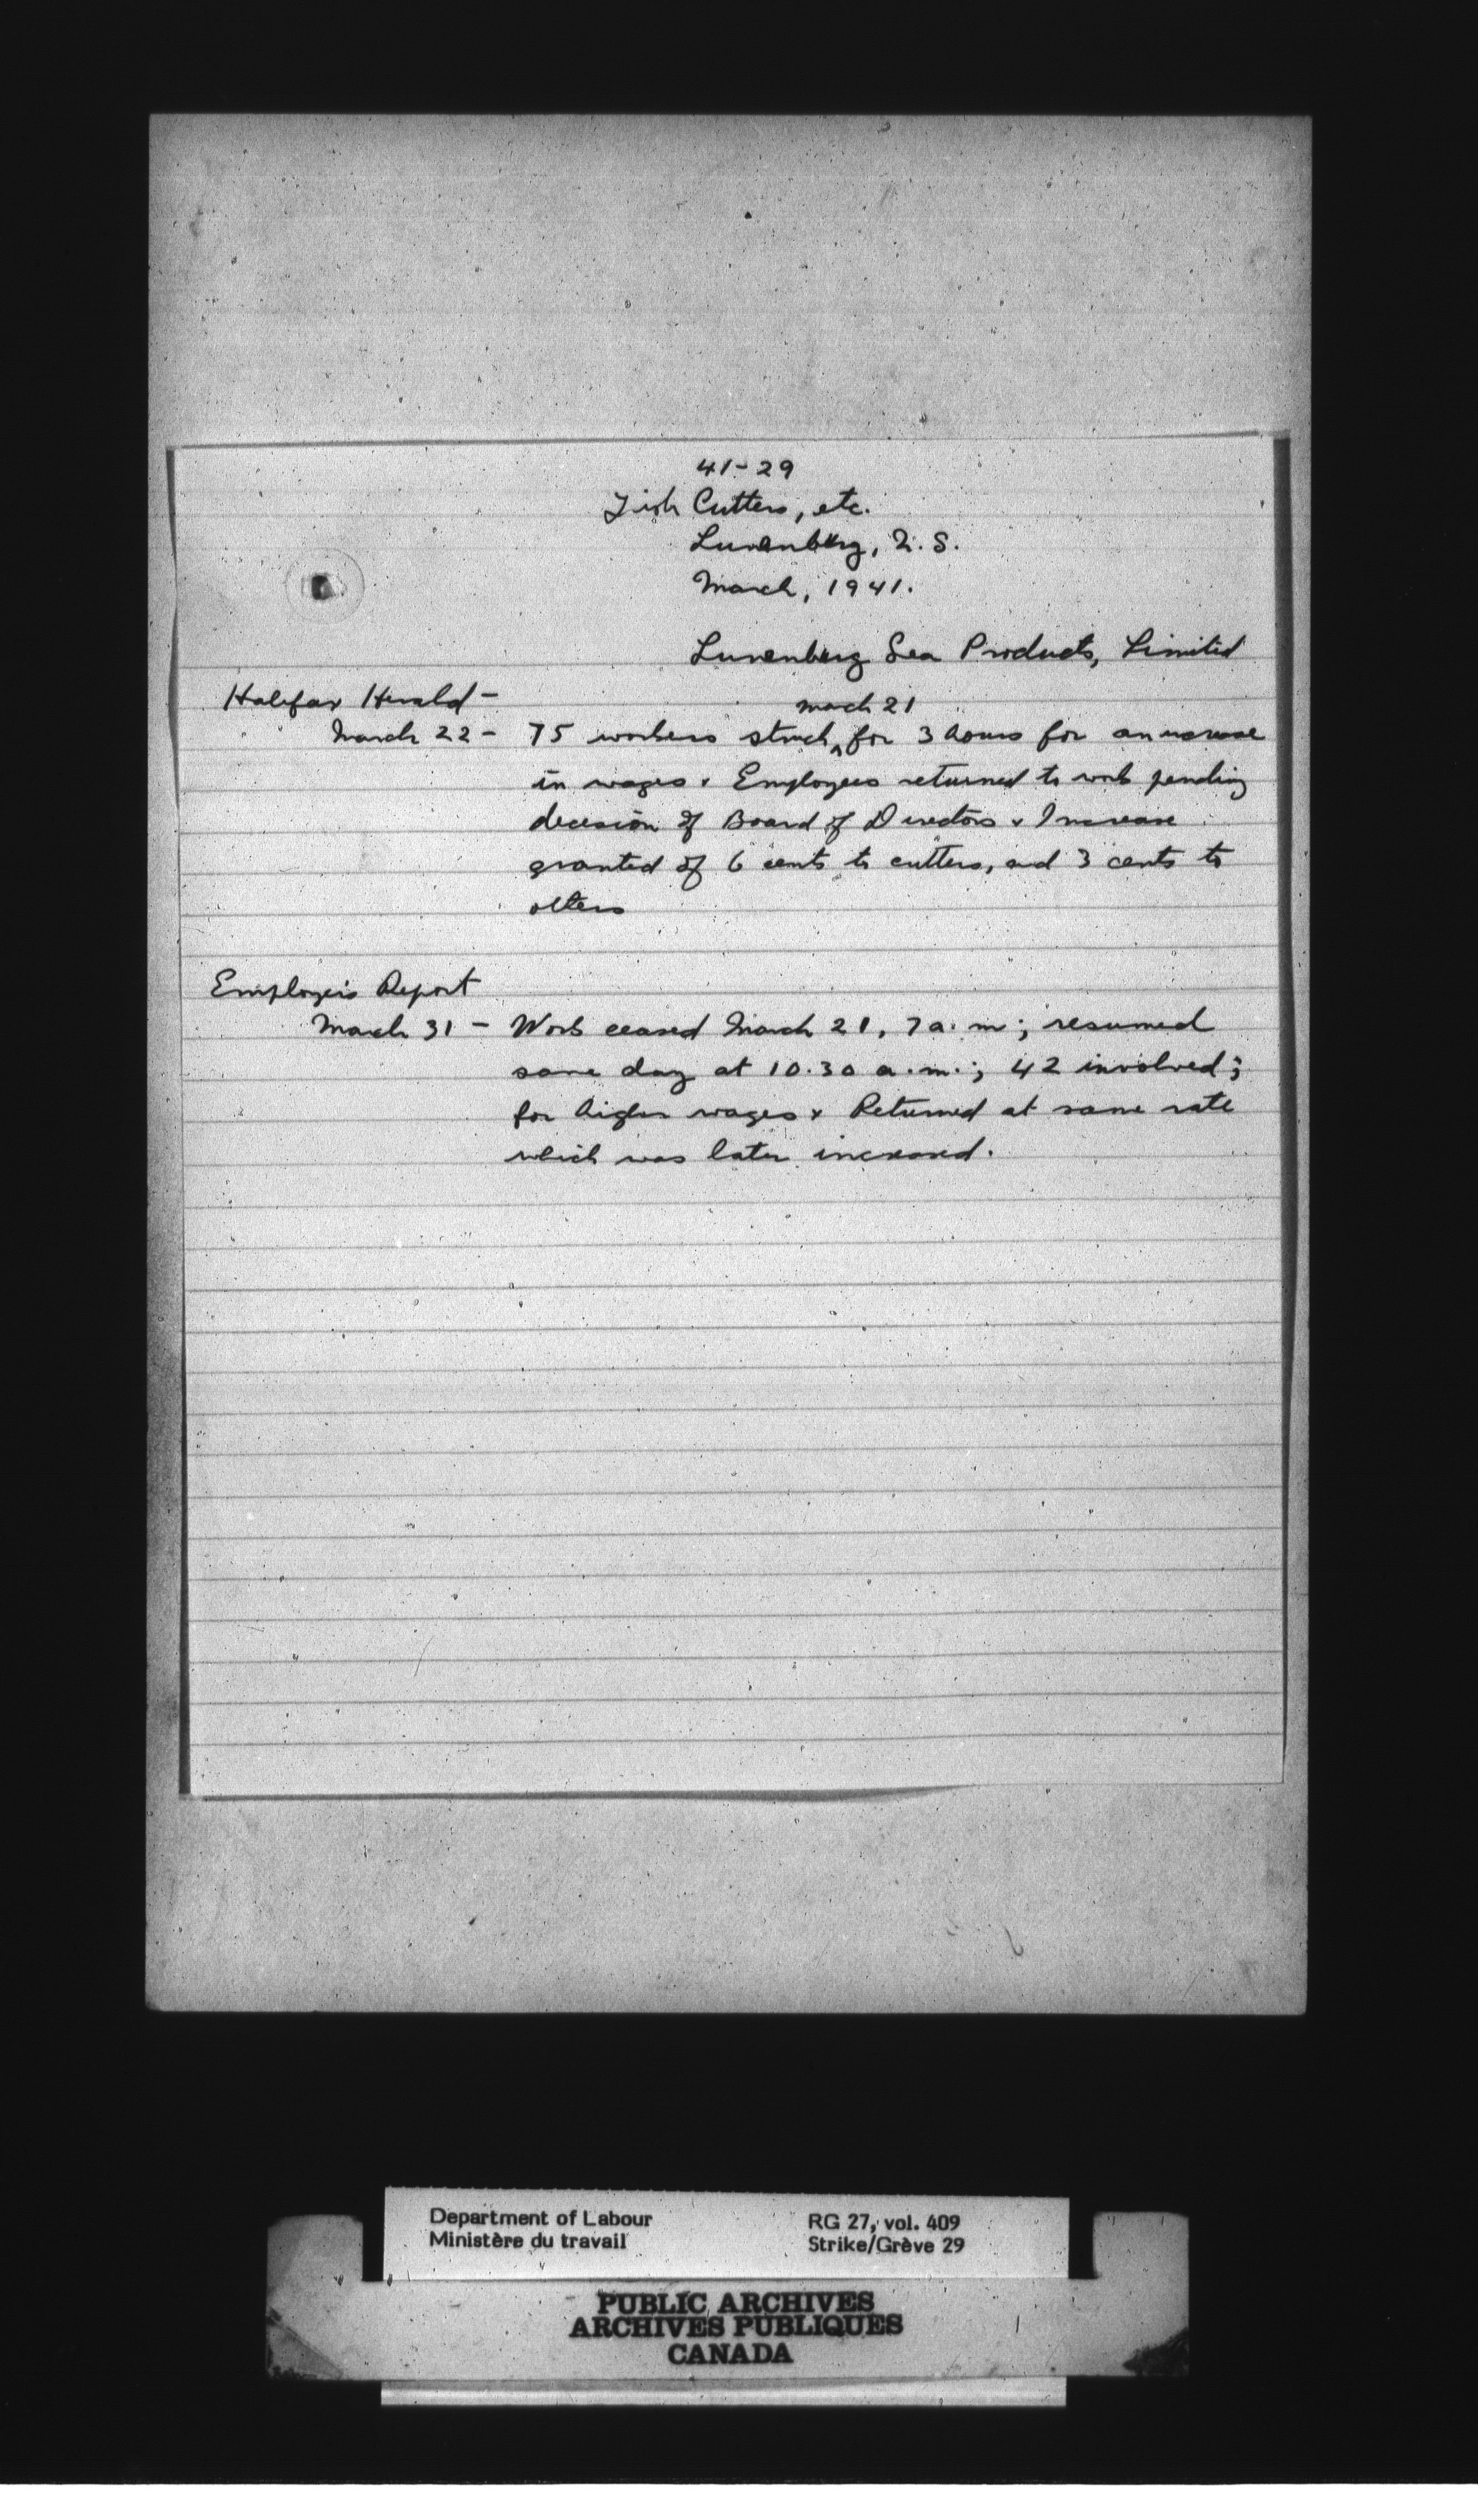 41-29
Fish Cutters, etc.
Lunenburg, N.S.
March, 1941.
Lunenburg Sea Products, Limited
Halifax Herald -
March 21
March 22 - 75 workers struck ^ for 3 hours for an increase
in wages x Employees returned to work pending
decision of Board of Directors x Increase
granted of 6 cents to cutters, and 3 cents to
others
Employer's Report
March 31 - Work ceased March 21, 7 a.m.; resumed
same day at 10.30 a.m.; 42 involved;
for higher wages x Returned at same rate
which was later increased.
Department of Labour RG 27, vol. 409
Ministère du travail Strike/Grève 29
PUBLIC ARCHIVES
ARCHIVES PUBLIQUES
CANADA